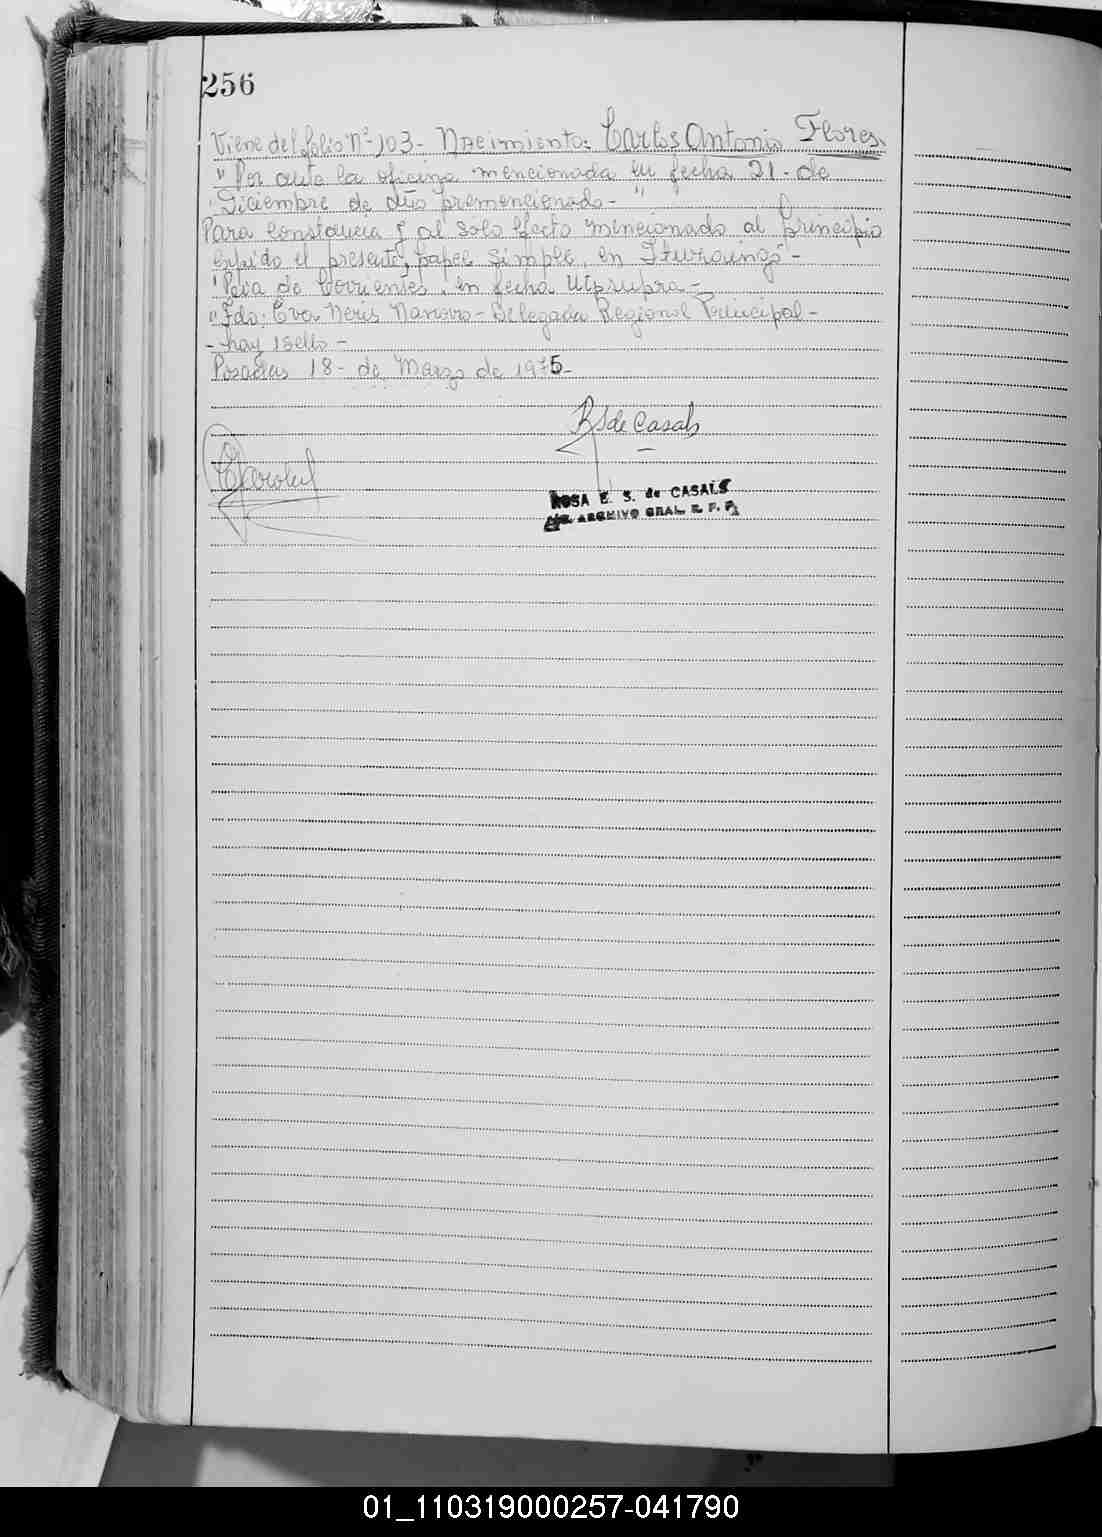 256
Viene del folio Nº 103- Nacimiento: Carlos Antonio Flores.
"Por ante la oficina mencionada en fecha 21- de
"Diciembre de año premencionado- "
Para constancia y al solo efecto mencionado al principio
expido el presente, papel simple, en Ituzaingó"-
"Pcia de Corrientes, en fecha Utsupra-
"Fdo: Eva Neris Navarro- Delegada Regional Principal-
- hay 1 sello -
Posadas 18- de Marzo de 1975-
RS de Casals
ROSA E. S. de CASALS
ARCHIVO GRAL. R. P. P.
01_110319000257-041790